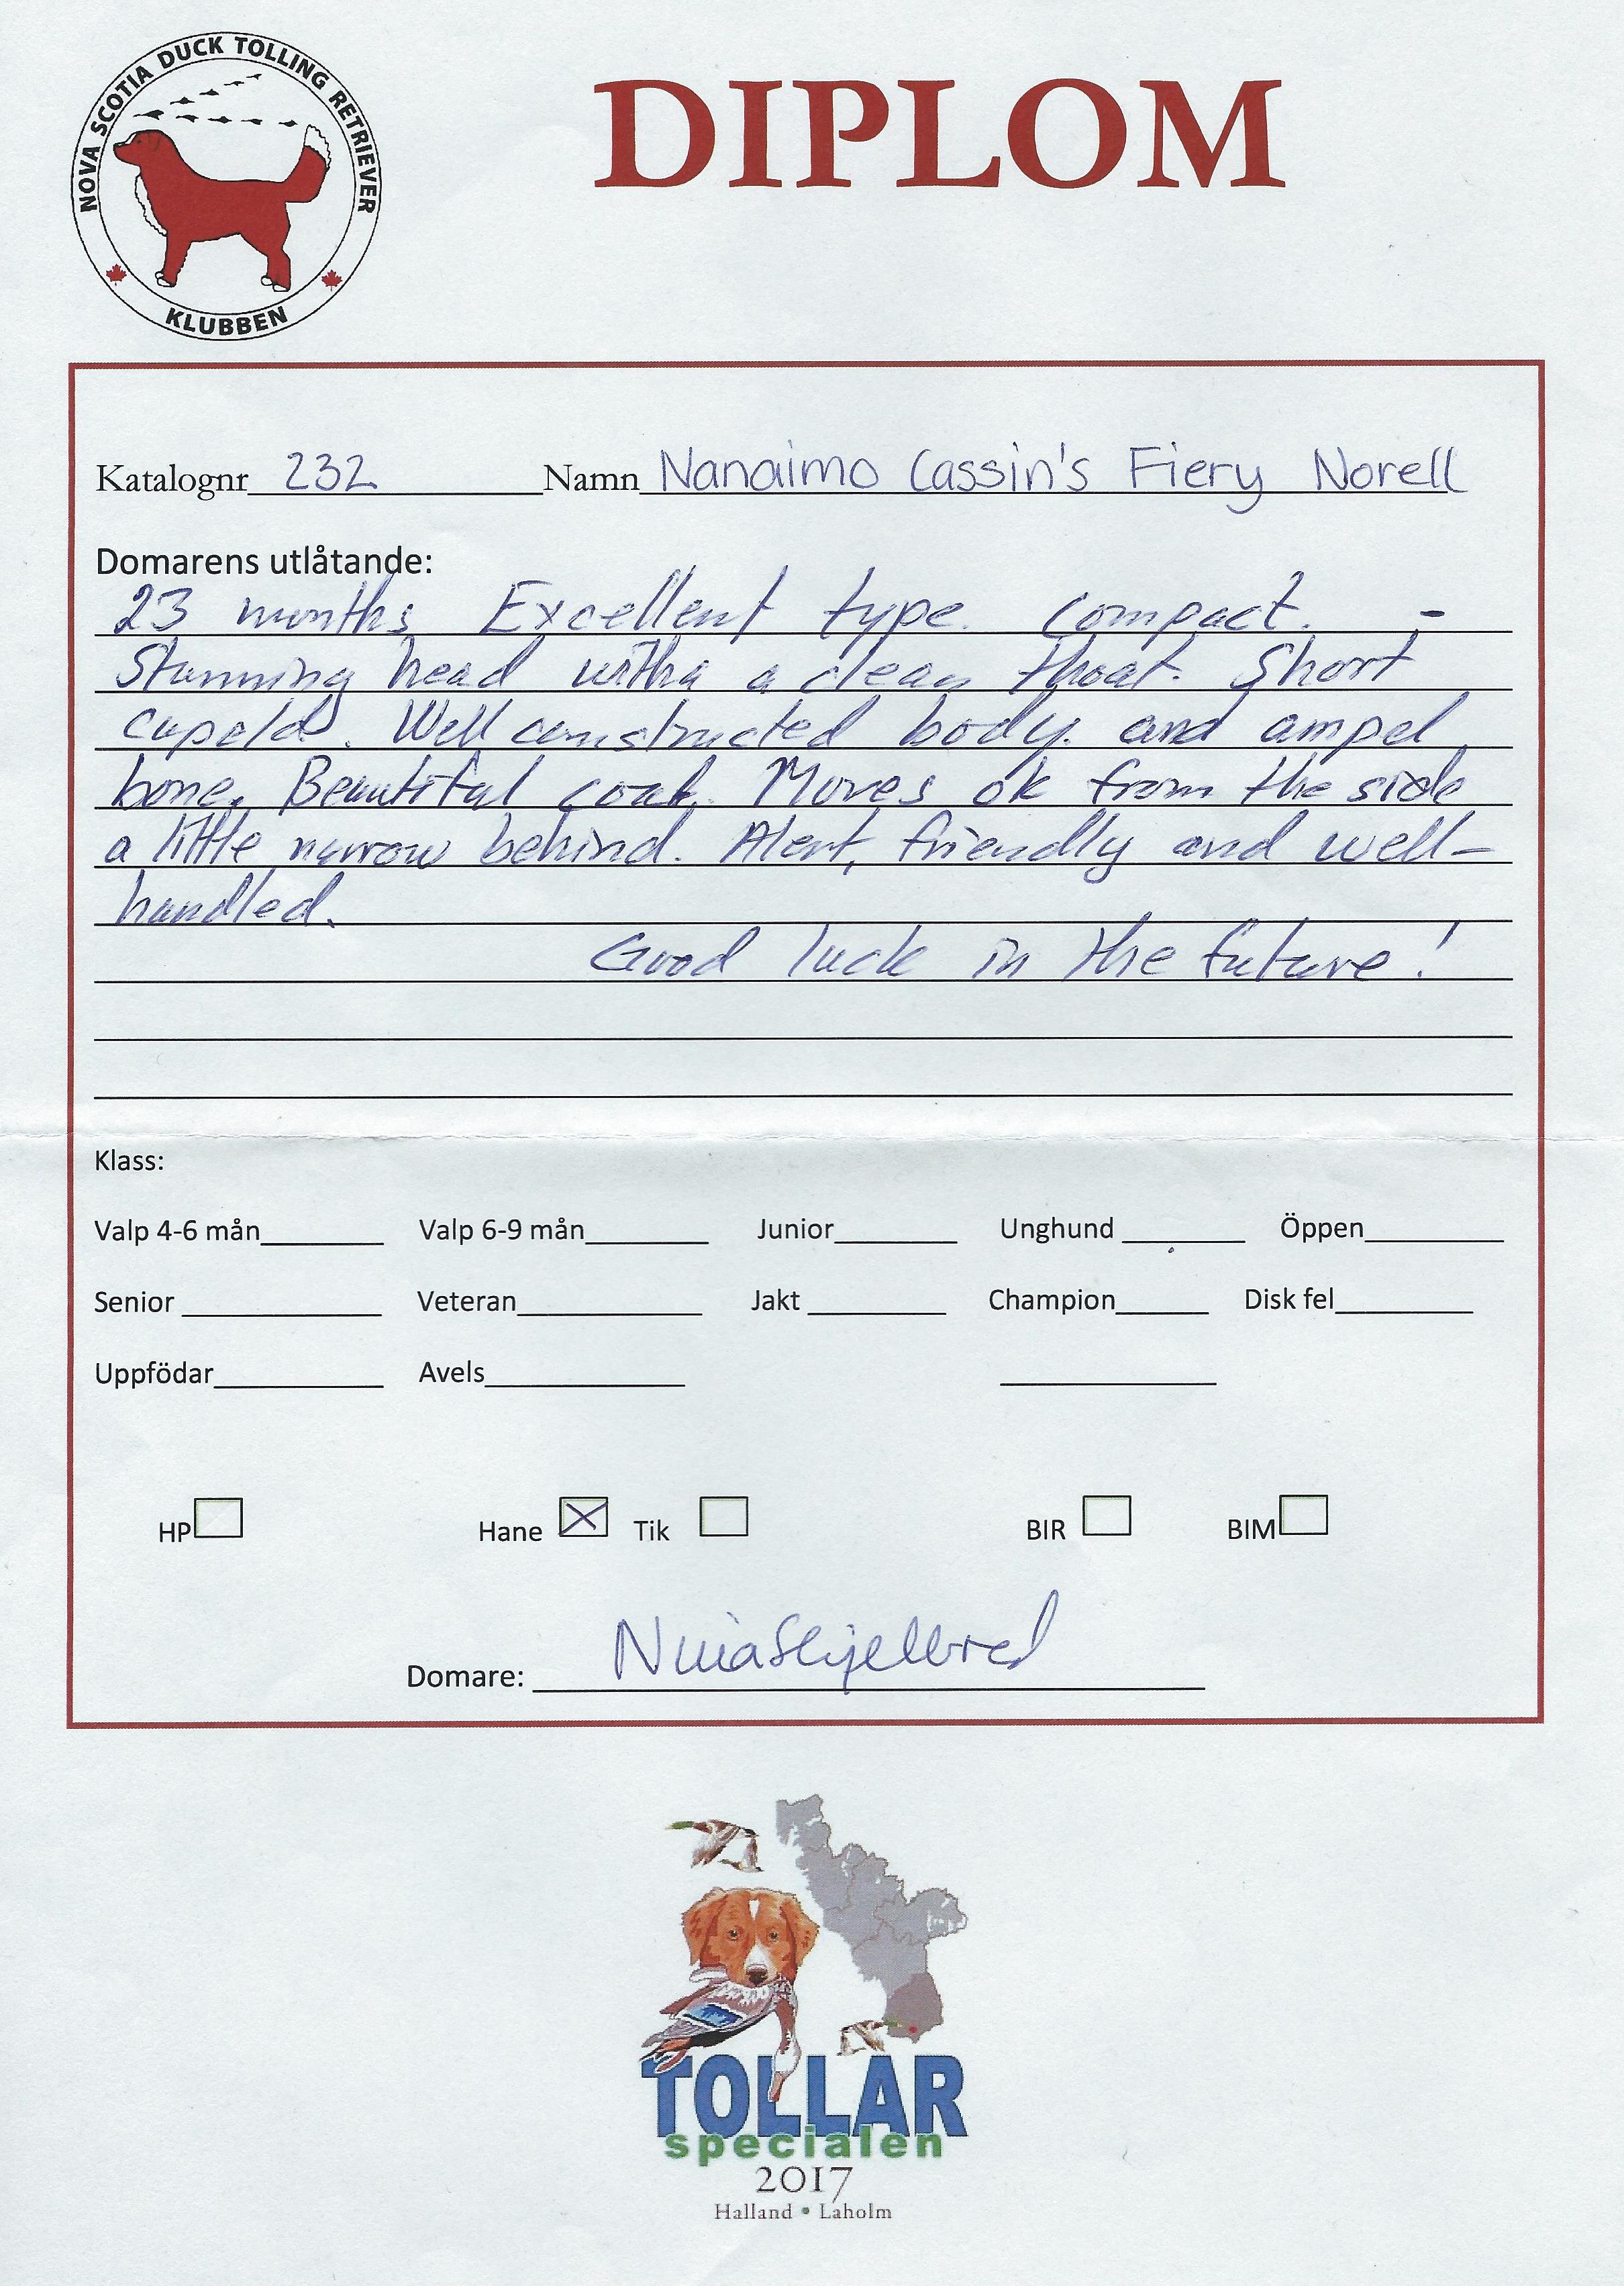 NOVA SCOTIA DUCK TOLLING RETRIEVER
KLUBBEN
DIPLOM
Katalognr 232 Namn Nanaimo Cassin's Fiery Norell
Domarens utlåtande:
23 months Excellent type. Compact. -
Stunning head witha a clean throat. Short
cupeld. Well constructed body. and ampel
bone. Beautiful coat. Moves ok from the side
a little narrow behind. Alert, friendly and well-
handled.
Good luck in the future!
Klass:
Valp 4-6 mån Valp 6-9 mån Junior Unghund Öppen
Senior Veteran Jakt Champion Disk fel
Uppfödar Avels
HP Hane X Tik BIR BIM
Domare: Nina Skjelbred
TOLLAR
specialen
2017
Halland • Laholm